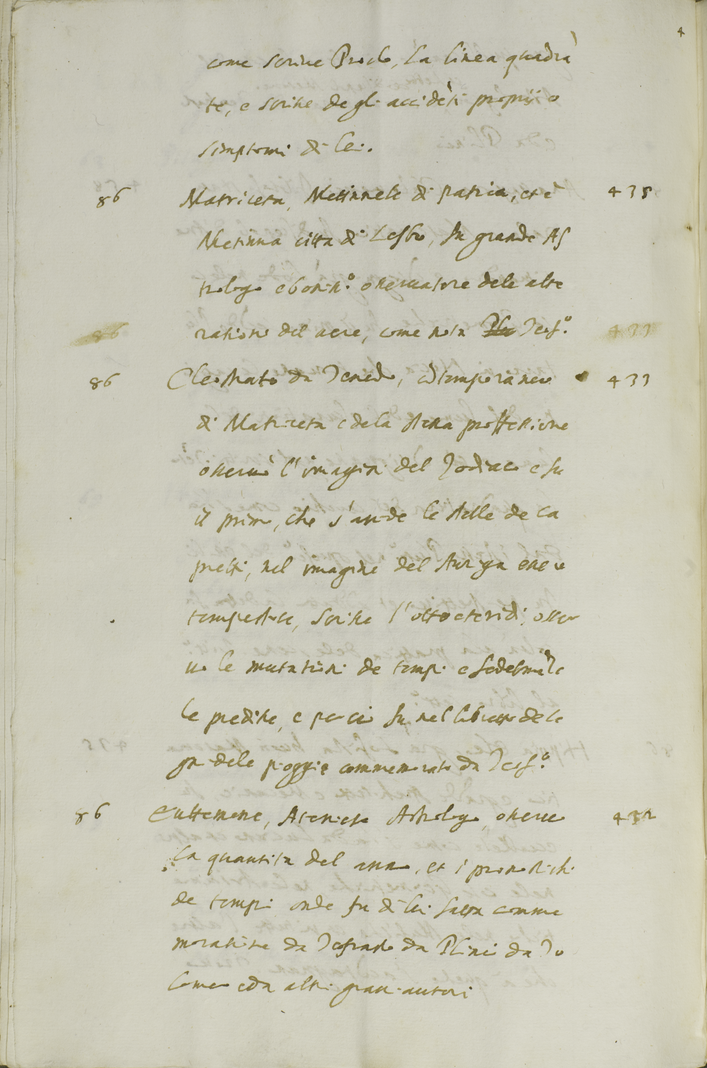 4
come scrive Proclo, la linea quadrā
te, e scrisse degli accidēti proprii o
simptomi di lei.
86 Matriceta, Metinnele di patria, cioè 435
Metinna città di Lesbo, fu grande As
trologo e boniss.º osservatore dele alte
rationi del aere, come nota Teof.º
86 433
86 Cleostrato da Tenedo, cōtemporaneo 433
di Matriceta e dela stessa proffessione
osservò l'imagin del Zodiaco e fu
il primo, che le stelle de ca
pretti, nel imagine del Auriga
tempestose, scrisse l'ottoeteridi, osser
vò le mutationi de tempi e fedelmēte
le predisse, e perciò fu nel libretto dele
dele pioggie commemorato da Teof.º
86 Euttemone, Ateniese Astrologo osservò 432
la quantità del anno, et i pronostichi
de tempi onde fu di lui fatta comme
moratione da Teofrasto da Plinio da To
lomeo e da altri gravi autori